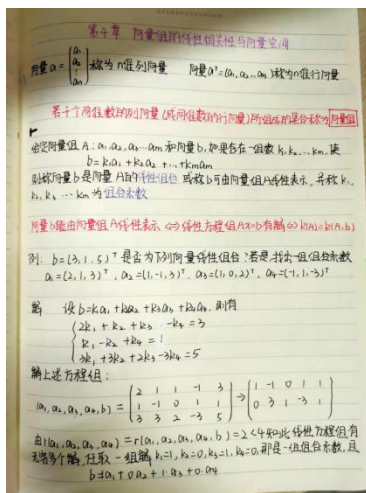 第4章 向量组的线性相关性与向量空间
向量a=(a₁ a₂ ⋮ aₙ)称为n维列向量 向量aᵀ=(a₁,a₂…aₙ)称为n维行向量
若干个同维数的列向量(或同维数的行向量)所组成的集合称为向量组
给定向量组A:a₁,a₂,a₃…am和向量b,如果存在一组数k₁,k₂…km,使
b=k₁a₁+k₂a₂+…+kmam
则称向量b是向量A的线性组合 或称b可由向量组A线性表示,并称k₁,
k₂,k₃…km为组合系数
向量b能由向量组A线性表示⇔线性方程组Ax=b有解⇔R(A)=R(A,b)
例:b=(3,1,5)ᵀ是否为下列向量线性组合?若是,找出一组组合系数
a₁=(2,1,3)ᵀ,a₂=(1,-1,3)ᵀ,a₃=(1,0,2)ᵀ,a₄=(-1,1,-3)ᵀ
解 设b=k₁a₁+k₂a₂+k₃a₃+k₄a₄,则有
2k₁+k₂+k₃-k₄=3
k₁-k₂+k₄=1
3k₁+3k₂+2k₃-3k₄=5
解上述方程组:
(a₁,a₂,a₃,a₄,b)=(2 1 1 -1 3 → (1 -1 0 1 1
1 -1 0 1 1 0 3 1 -3 1)
3 3 2 -3 5)
由r(a₁,a₂,a₃,a₄)=r(a₁,a₂,a₃,a₄,b)=2<4知此线性方程组有
无穷多个解,任取一组解k₁=1,k₂=0,k₃=1,k₄=0,那是一组组合系数,且
b=a₁+0a₂+1·a₃+0·a₄